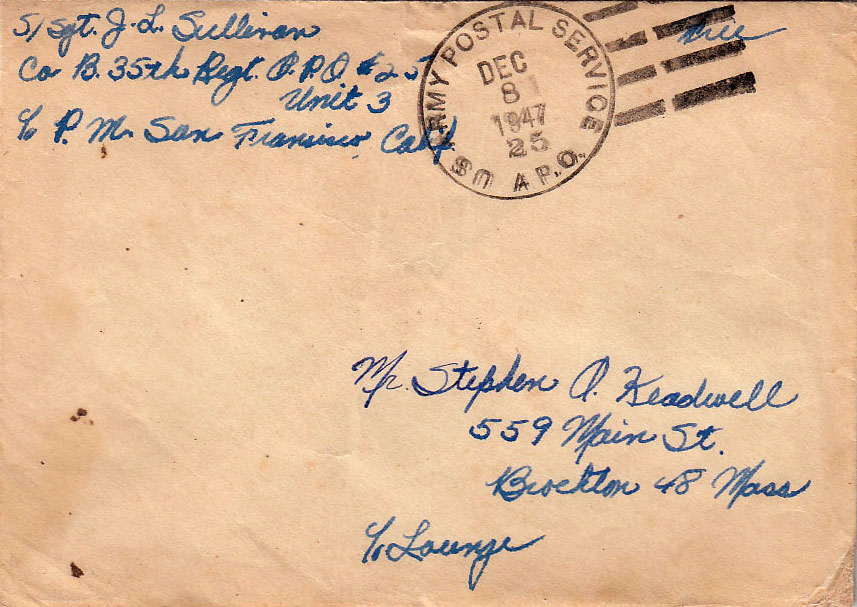 S/Sgt. J. L. Sullivan
Co B. 35th Regt. A.P.O #25
Unit 3
c/o P. M. San Francisco, Calif.
ARMY POSTAL SERVICE
DEC
8
1947
25
US A.P.O.
Free
Mr. Stephen A. Keadwell
559 Main St.
Brockton 48 Mass
c/o Lounge